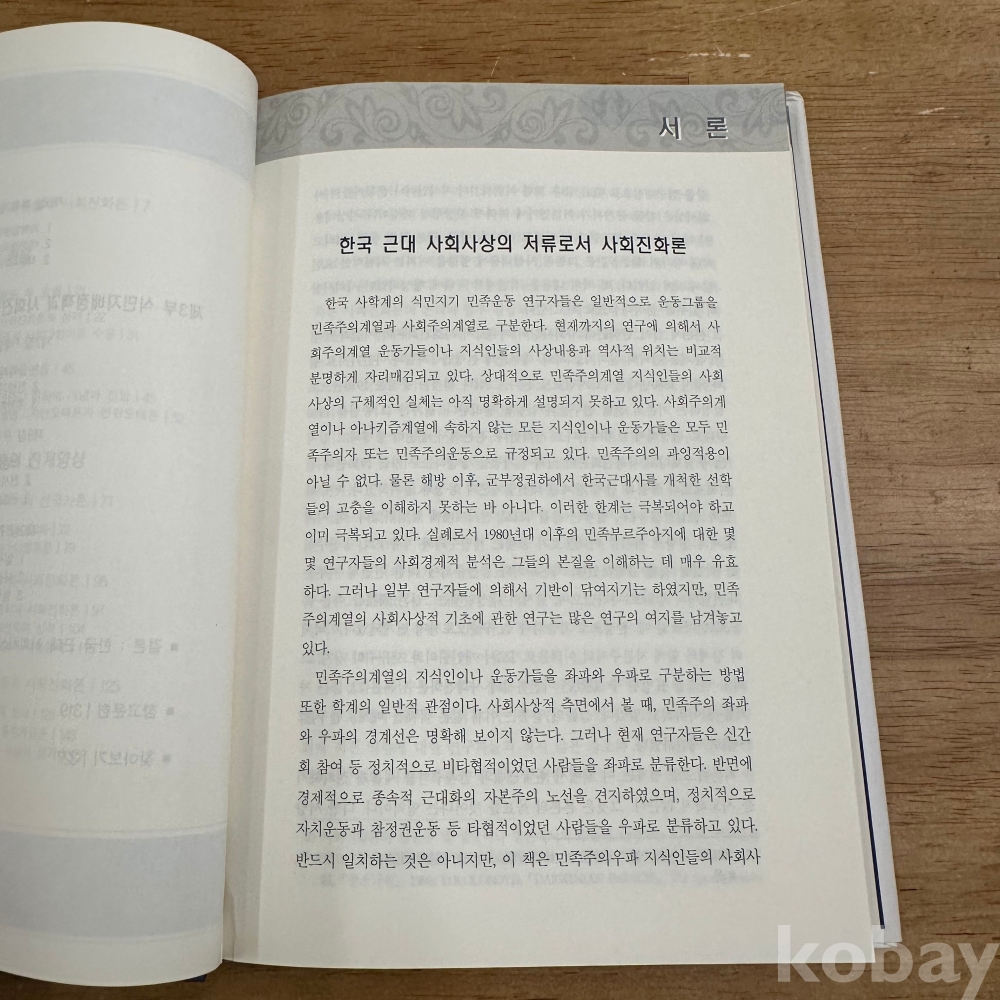 서 론
한국 근대 사회사상의 저류로서 사회진화론
한국 사학계의 식민지기 민족운동 연구자들은 일반적으로 운동그룹을
민족주의계열과 사회주의계열로 구분한다. 현재까지의 연구에 의해서 사
회주의계열 운동가들이나 지식인들의 사상내용과 역사적 위치는 비교적
분명하게 자리매김되고 있다. 상대적으로 민족주의계열 지식인들의 사회
사상의 구체적인 실체는 아직 명확하게 설명되지 못하고 있다. 사회주의계
열이나 아나키즘계열에 속하지 않는 모든 지식인이나 운동가들은 모두 민
족주의자 또는 민족주의운동으로 규정되고 있다. 민족주의의 과잉적용이
아닐 수 없다. 물론 해방 이후, 군부정권하에서 한국근대사를 개척한 선학
들의 고충을 이해하지 못하는 바 아니다. 이러한 한계는 극복되어야 하고
이미 극복되고 있다. 실례로서 1980년대 이후의 민족부르주아지에 대한 몇
몇 연구자들의 사회경제적 분석은 그들의 본질을 이해하는 데 매우 유효
하다. 그러나 일부 연구자들에 의해서 기반이 닦여지기는 하였지만, 민족
주의계열의 사회사상적 기초에 관한 연구는 많은 연구의 여지를 남겨놓고
있다.
민족주의계열의 지식인이나 운동가들을 좌파와 우파로 구분하는 방법
또한 학계의 일반적 관점이다. 사회사상적 측면에서 볼 때, 민족주의 좌파
와 우파의 경계선은 명확해 보이지 않는다. 그러나 현재 연구자들은 신간
회 참여 등 정치적으로 비타협적이었던 사람들을 좌파로 분류한다. 반면에
경제적으로 종속적 근대화의 자본주의 노선을 견지하였으며, 정치적으로
자치운동과 참정권운동 등 타협적이었던 사람들을 우파로 분류하고 있다.
반드시 일치하는 것은 아니지만, 이 책은 민족주의우파 지식인들의 사회사
kobay